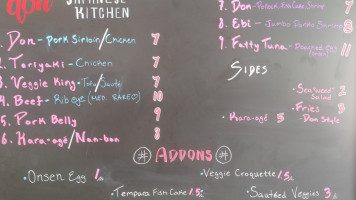 JAPANESE
KITCHEN
1. Don - Pork Sirloin/Chicken 7
2. Teriyaki - Chicken 7
3. Veggie King - Tofu/Sauté 7
4. Beef - Ribeye (MED. RARE) 10
5. Pork Belly 9
6. Kara-agé/Nan-ban 8
7. Don - Fish Cake 7
8. Ebi - Jumbo Shrimp 8
9. Fatty Tuna - 11
SIDES
Seaweed Salad 2
Fries - Don Style 3
Kara-agé 5
# ADDONS #
Onsen Egg 1.
Veggie Croquette 1.5
Tempura Fish Cake 1.5
Sautéed Veggies 3